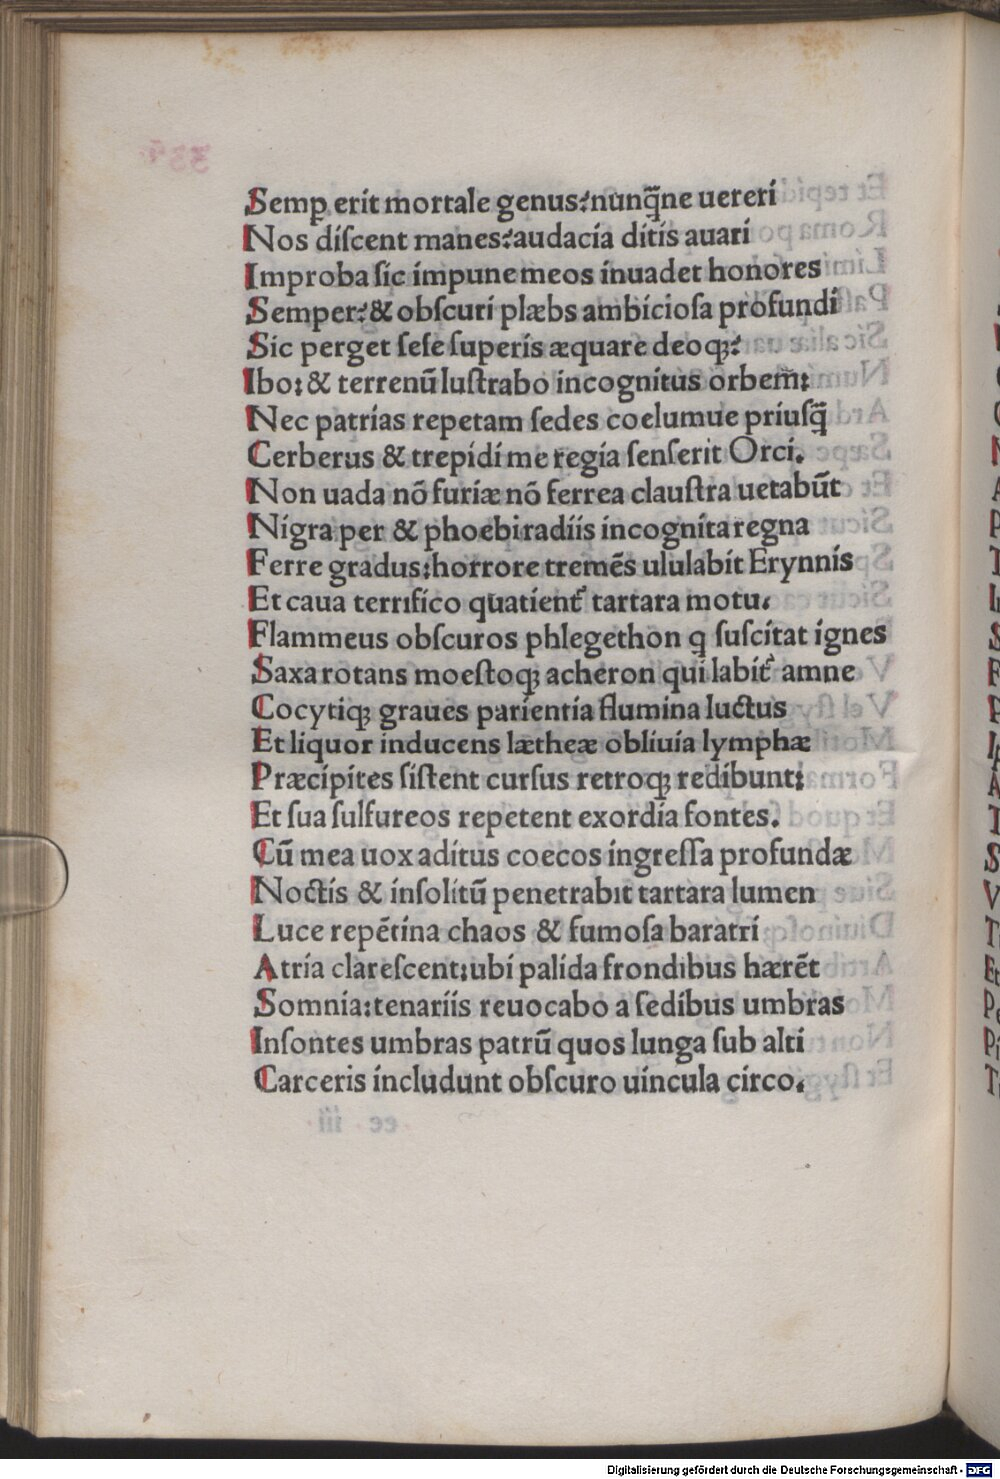 Semꝑ erit mortale genus? nunq̃ne uereri
Nos diſcent manes? audacia ditis auari
Improba ſic impune meos inuadet honores
Semper? & obſcuri plæbs ambicioſa profundi
Sic perget ſeſe ſuperis æquare deoqꝫ?
Ibo: & terrenū luſtrabo incognitus orbem̃:
Nec patrias repetam ſedes coelumue priuſq̃
Cerberus & trepidi me regia ſenſerit Orci.
Non uada nō furiæ nō ferrea clauſtra uetabūt
Nigra per & phoebi radiis incognita regna
Ferre gradus: horrore tremēs ululabit Erynnis
Et caua terrifico quatient᷑ tartara motu.
Flammeus obſcuros phlegethon ꝗ ſuſcitat ignes
Saxa rotans moeſtoqꝫ acheron qui labit᷑ amne
Cocytiqꝫ graues parientia flumina luctus
Et liquor inducens lætheæ obliuia lymphæ
Præcipites ſiſtent curſus retroqꝫ redibunt:
Et ſua ſulfureos repetent exordia fontes.
Cū mea uox aditus coecos ingreſſa profundæ
Noctis & inſolitū penetrabit tartara lumen
Luce repētina chaos & fumoſa baratri
Atria clareſcent: ubi palida frondibus hærēt
Somnia: tenariis reuocabo a ſedibus umbras
Inſontes umbras patrū quos lunga ſub alti
Carceris includunt obſcuro uincula circo.
Digitalisierung gefördert durch die Deutsche Forschungsgemeinschaft - DFG